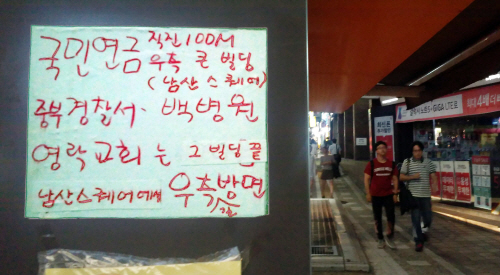 국민연금 직진100M
우측 큰 빌딩
(남산 스퀘어)
중부경찰서·백병원
영락교회는 그 빌딩 끝
남산스퀘어에서 우측방면
GIGA LTE로
최대 4배 더